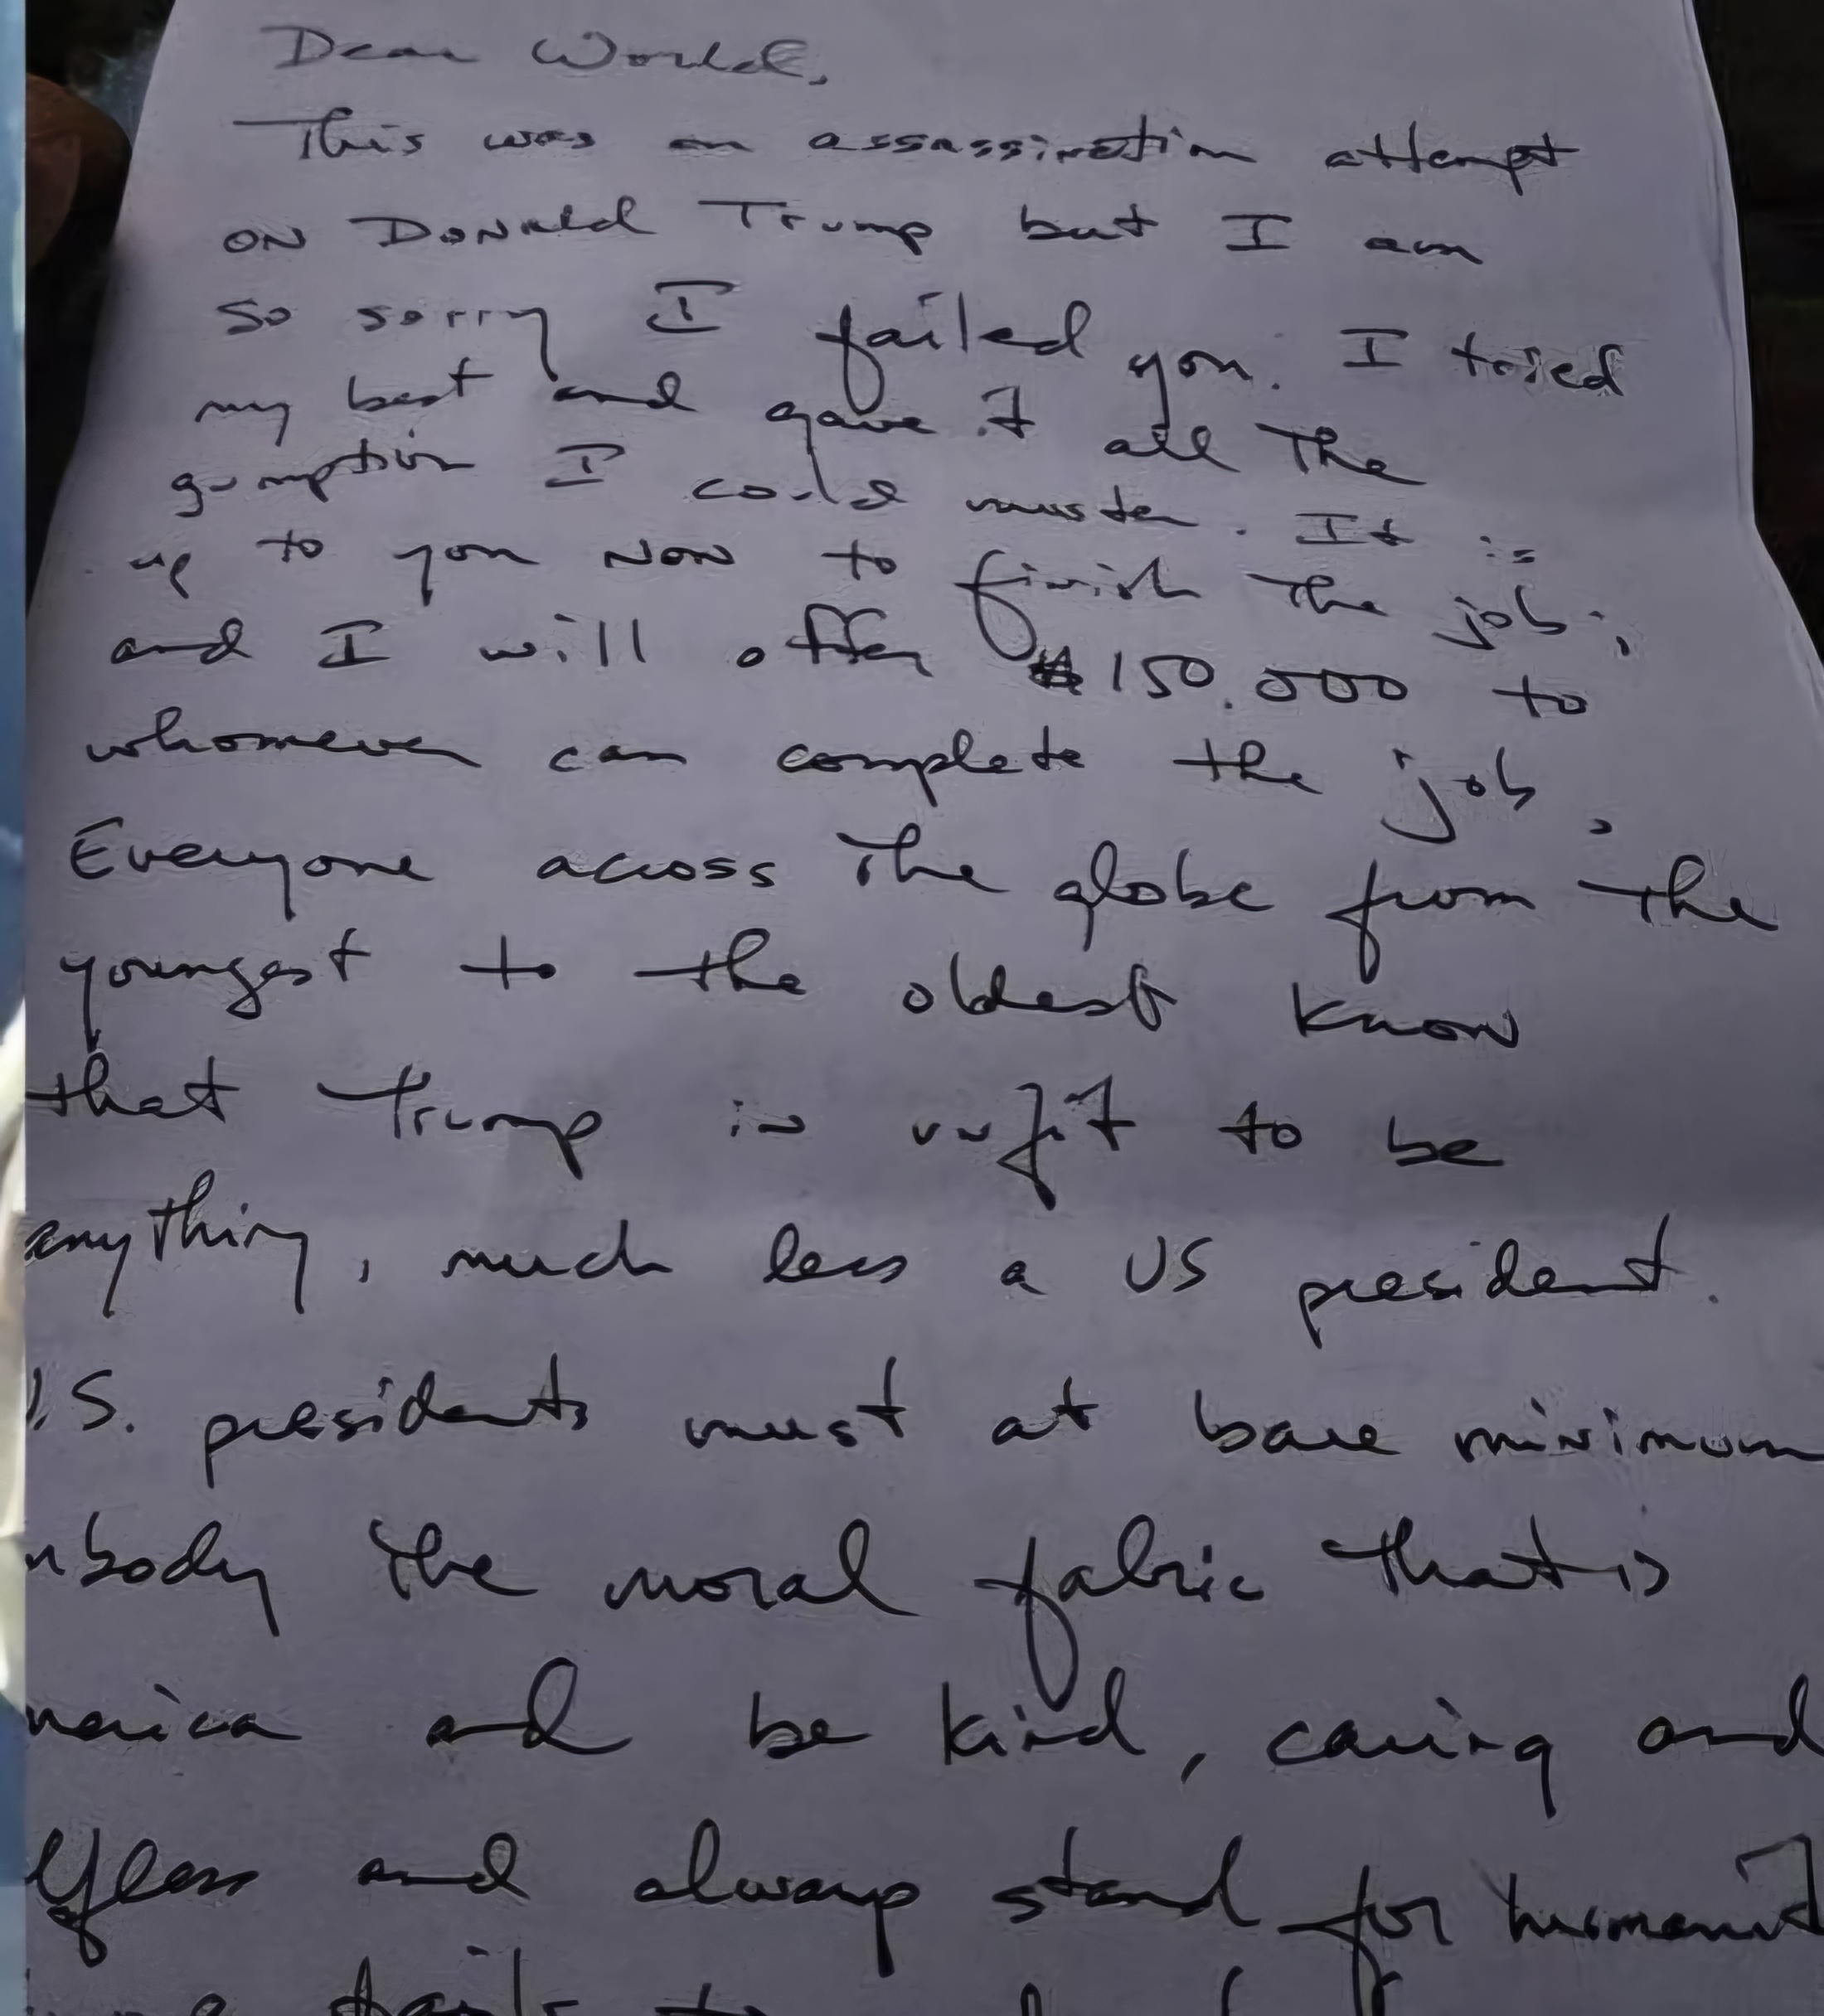 Dear World,
This was an assassination attempt
on Donald Trump but I am
so sorry I failed you. I tried
my best and gave it all the
gumption I could muster. It is
up to you now to finish the job;
and I will offer $150,000 to
whomever can complete the job.
Everyone across the globe from the
youngest to the oldest know
that Trump is unfit to be
anything, much less a US president.
U.S. presidents must at bare minimum
mbody the moral fabric that is
merica and be kind, caring and
lfless and always stand for humanit
fails to